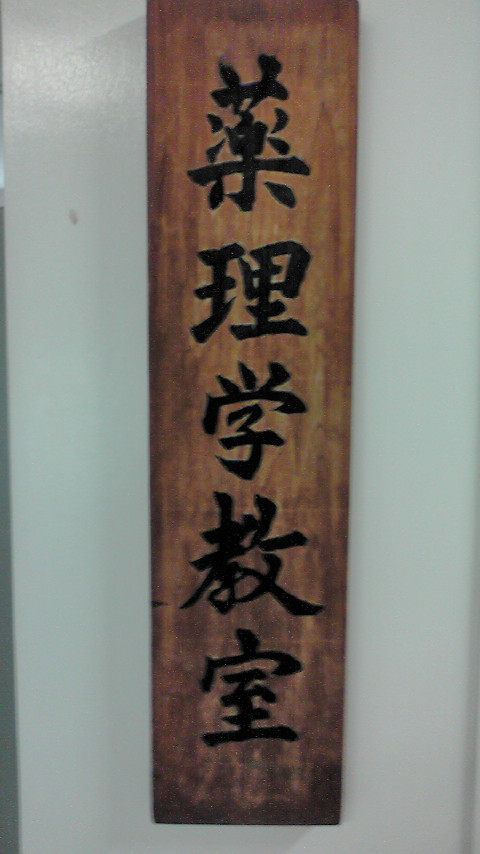 薬理学教室